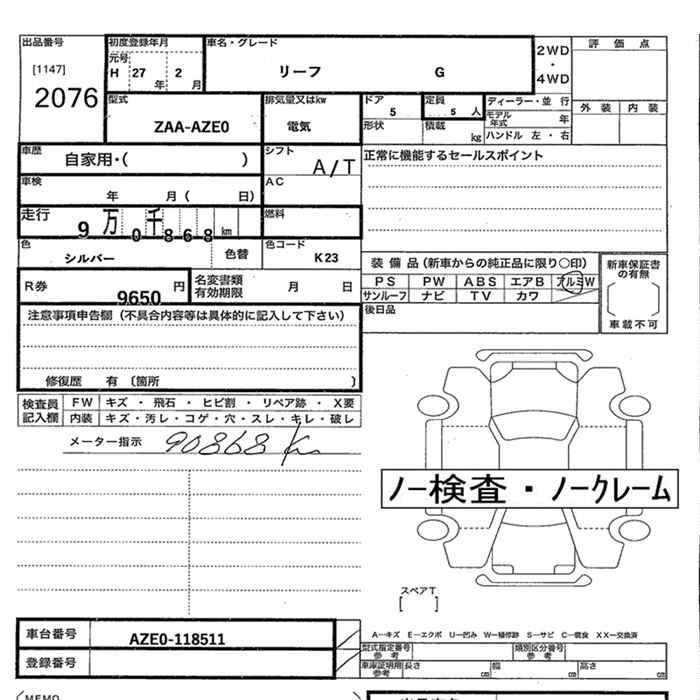 出品番号 初度登録年月 車名・グレード 2WD ・ 4WD 評価点
[1147] 元号 H 27年 2月 リーフ G
2076 外装 内装
型式 排気量又はkw ドア 定員 ディーラー・並行
ZAA-AZE0 電気 5 5人 モデル年式 年
形状 積載 kg ハンドル 左・右
車歴 自家用・( ) シフト A/T 正常に機能するセールスポイント
車検 年 月( 日) AC
走行 9万0千868km 燃料
色 シルバー 色替 色コード K23
装備品(新車からの純正品に限り○印) 新車保証書の有無
R券 9650円 名変書類有効期限 月 日 PS PW ABS エアB アルミW
サンルーフ ナビ TV カワ
[ ]
車載不可
注意事項申告欄(不具合内容等は具体的に記入して下さい) 後日品
修復歴 有 〔箇所 〕
検査員記入欄 FW キズ・飛石・ヒビ割・リペア跡・X要
内装 キズ・汚レ・コゲ・穴・スレ・キレ・破レ
メーター指示 90868 Km
ノー検査・ノークレーム
スペアT
[ ]
車台番号 AZE0-118511
A−キズ E−エクボ U−凹み W−補修跡 S−サビ C−腐食 XX−交換済
登録番号 型式指定番号 参考 類別区分番号 参考
車庫証明用参考 長さ cm 幅 cm 高さ cm
MEMO